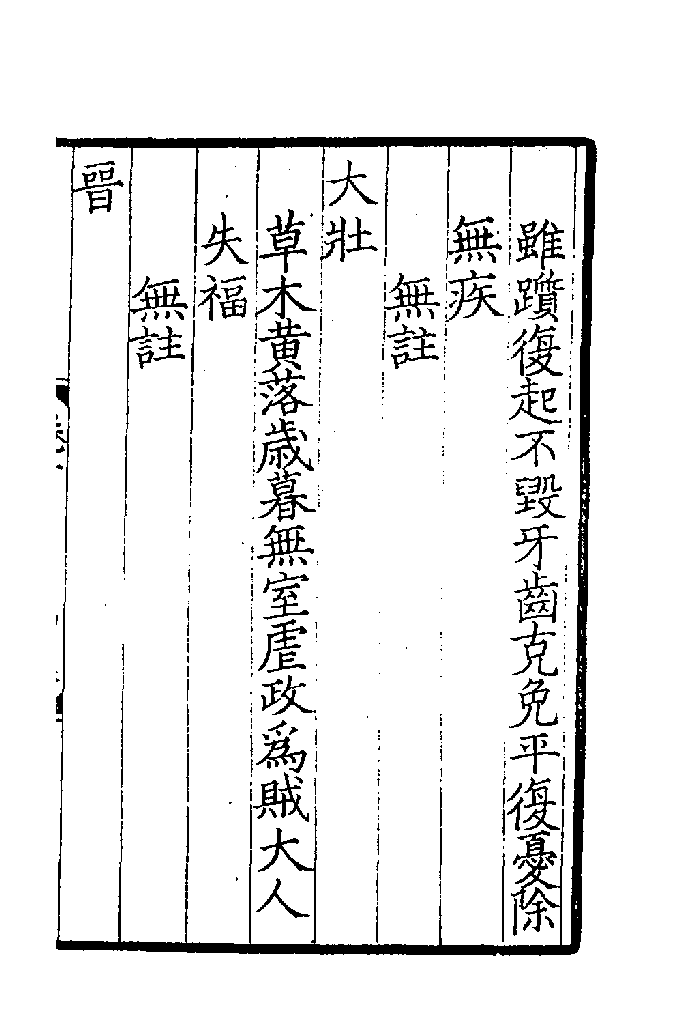 雖躓復起不毀牙齒克免平復憂除
無疾
無註
大壯
草木黄落歳暮無室虐政為賊大人
失福
無註
晉